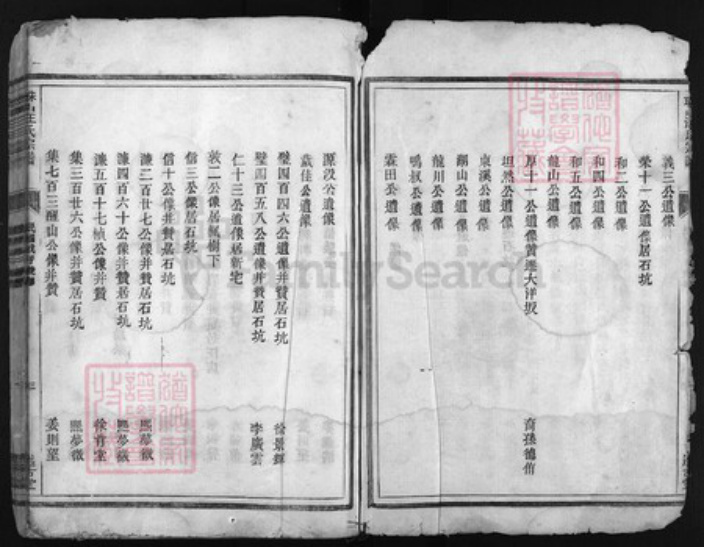 義三公遺像
榮十一公遺像居石坑
和二公遺像
和四公遺像
和五公遺像
龍山公遺像
厚十一公遺像贊遷大洋坂 裔孫德侑
坦然公遺像
東溪公遺像
湖山公遺像
龍川公遺像
鳴叔公遺像
霖田公遺像
公遺像
公遺像
璧四百四六公遺像并贊居石坑 徐景輝
璧四百五八公遺像并贊居石坑 李廣雲
仁十三公遺像居新宅
敦二公像居楓樹下
信三公像居石坑
信十公像并贊居石坑
濂二百廿七公像并贊居石坑 熙夢徵
濂四百六十公像并贊居石坑 熙夢徵
濂五百十七公像并贊 徐育堂
集三百廿六公像并贊居石坑 熙夢徵
集七百三醒山公像并贊 姜則望
王氏宗譜
FamilySearch